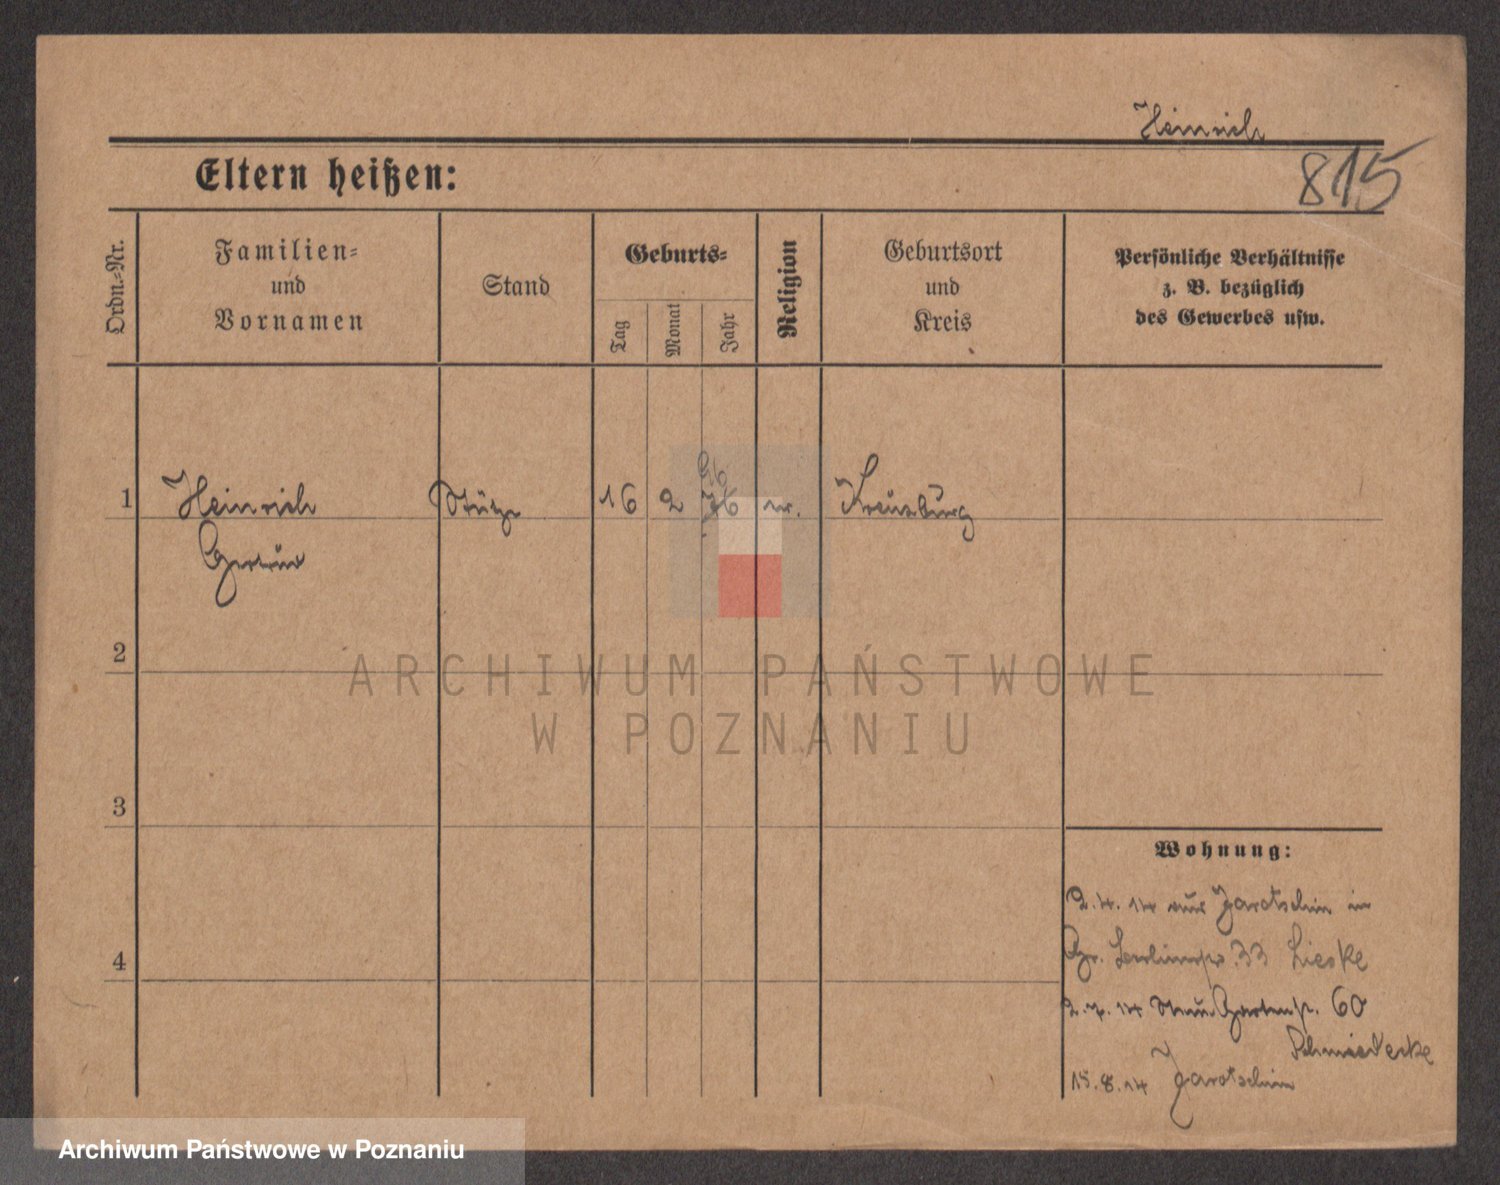 Heinrich
815
Eltern heißen:
Ordn.-Nr.
Familien-
und
Vornamen
Stand
Geburts-
Tag
Monat
Jahr
Religion
Geburtsort
und
Kreis
Persönliche Verhältnisse
z. B. bezüglich
des Gewerbes usw.
1 Heinrich Stütze 16 2 76 Kreuzburg
2
3
4
Wohnung:
2.4.14 aus Jarotschin in
33 Lieske
2.7.14 60
Schmiedecke
15.8.14 Jarotschin
ARCHIWUM PAŃSTWOWE
W POZNANIU
Archiwum Państwowe w Poznaniu